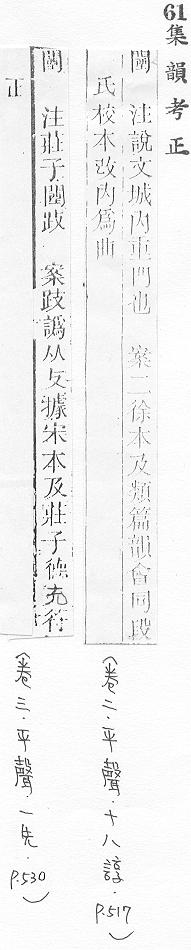 61集韻考正
闉 注說文城內重門也 案二徐本及類篇韻會同段
氏校本改內爲曲
(卷二.平聲.十八諄.P.517)
闉 注莊子闉跂 案跂譌从攴據宋本及莊子德充符
正
(卷三.平聲.一先.P.530)